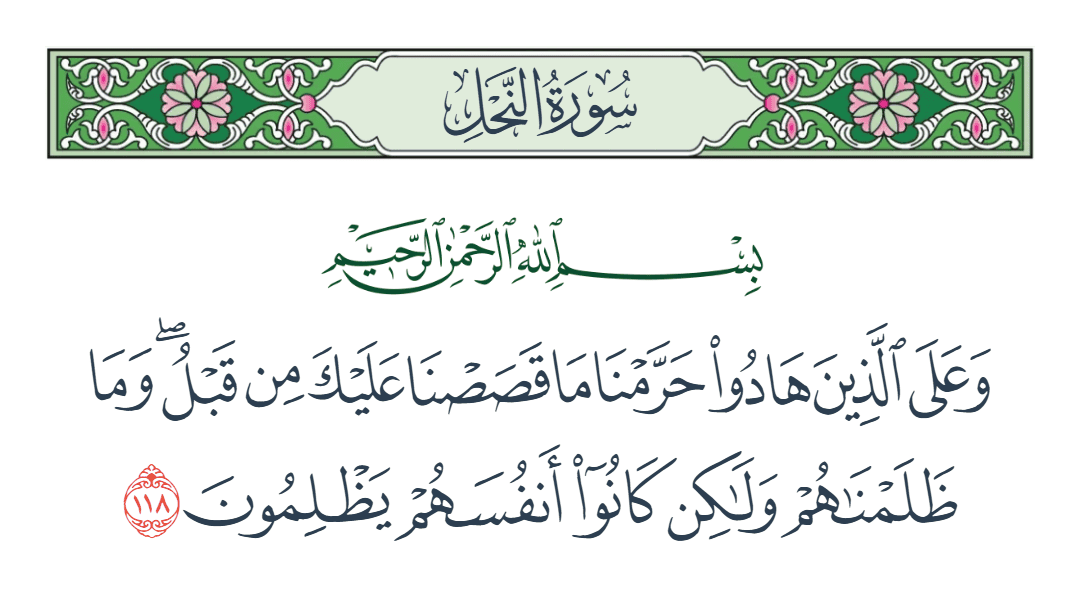 سُورَةُ النَّحْلِ
بِسْمِ ٱللَّهِ ٱلرَّحْمَٰنِ ٱلرَّحِيمِ
وَعَلَى ٱلَّذِينَ هَادُوا۟ حَرَّمْنَا مَا قَصَصْنَا عَلَيْكَ مِن قَبْلُ ۖ وَمَا
ظَلَمْنَـٰهُمْ وَلَـٰكِن كَانُوٓا۟ أَنفُسَهُمْ يَظْلِمُونَ ١١٨